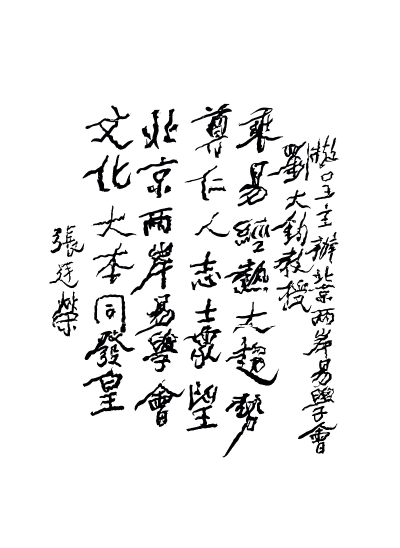 敬呈主辦北京兩岸易學會
劉大鈞教授
乘易經熱大趨勢
尊仁人志士眾望
北京兩岸易學會
文化大本同發皇
張廷榮